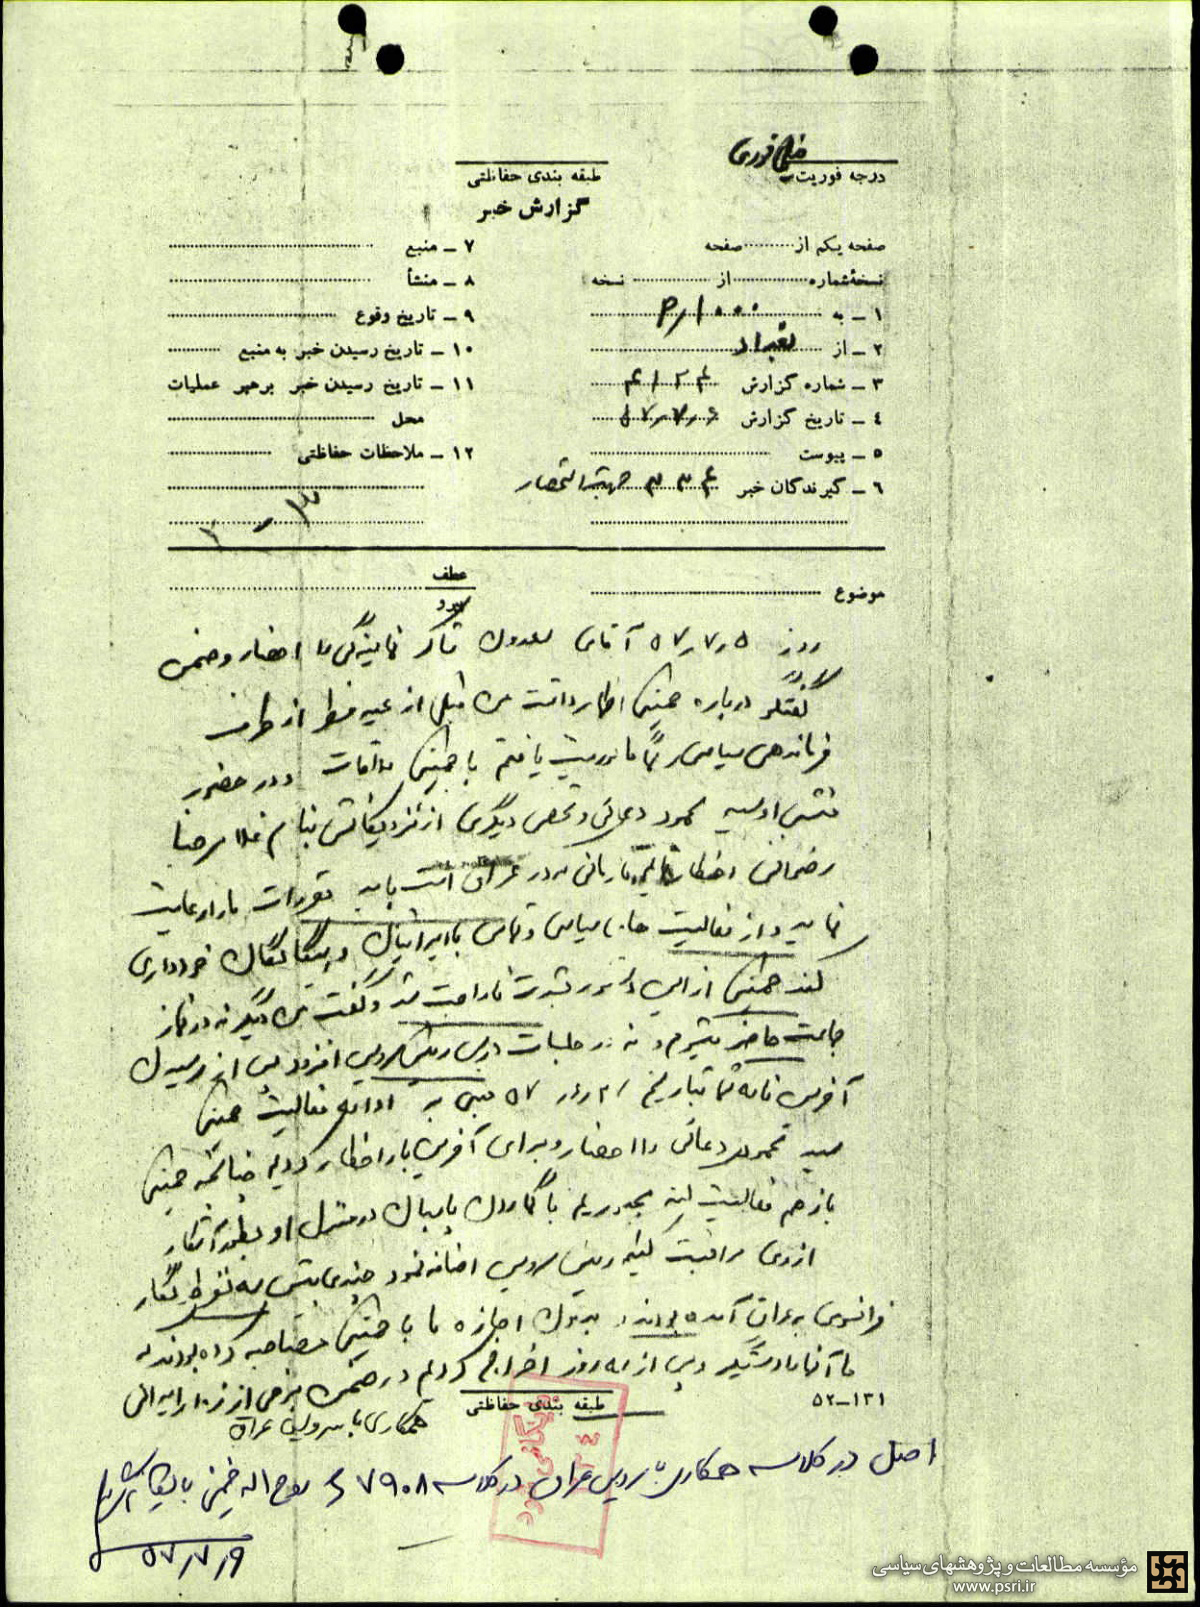 خیلی فوری
درجه فوریت
طبقه بندی حفاظتی
گزارش خبر
صفحه یکم از صفحه
نسخهٔ شماره از نسخه
۱ ـ به ۱۰۰۰ر۳
۲ ـ از بغداد
۳ ـ شماره گزارش
۴ ـ تاریخ گزارش ۵۷٫۷٫۶
۵ ـ پیوست
۶ ـ گیرندگان خبر جهت استحضار
۷ ـ منبع
۸ ـ منشأ
۹ ـ تاریخ وقوع
۱۰ ـ تاریخ رسیدن خبر به منبع
۱۱ ـ تاریخ رسیدن خبر برهبر عملیات
محل
۱۲ ـ ملاحظات حفاظتی
موضوع
عطف
پیرو
روز ۵۷٫۷٫۵ آقای سعدون شاکر نماینگی را احضار و ضمن
گفتگو درباره خمینی اظهار داشت من قبل از عید فطر از طرف
فرماندهی سیاسی مأموریت یافتم با خمینی ملاقات و در حضور
محمود دعائی و شخص دیگری از نزدیکانش بنام غلامرضا
رضوانی اخطار در عراق است باید مقررات ما را رعایت
نماید و از فعالیت های سیاسی و تماس با ایرانیان و بیگانگان خودداری
کند خمینی از این دستور بشدت ناراحت شد و گفت من دیگر نه در نماز
جماعت حاضر میشوم و نه در جلسات درس رئیس سرویس افزود پس از رسیدن
آخرین نامه شما بتاریخ ۵۷ مبنی بر ادامه فعالیت خمینی
سید محمود دعائی را احضار و برای آخرین بار اخطار کردیم چنانچه خمینی
باز هم فعالیت کند مجبوریم با گماردن پاسبان در منزل او بطور آشکار
از وی مراقبت کنیم رئیس سرویس اضافه نمود چندی پیش سه نفر خبرنگار
فرانسوی به عراق آمده بودند و بدون اجازه ما با خمینی مصاحبه کرده بودند که
ما آنها را دستگیر و پس از سه روز اخراج کردیم در ضمن برخی از زوار ایرانی
۱۳۱ـ۵۲
طبقه بندی حفاظتی
همکاری با سرویس عراق
اصل در کلاسه همکاری با سرویس عراق در کلاسه ۷۹۰۸ روح اله خمینی بایگانی شود
۵۷٫۷٫۹
مؤسسه مطالعات و پژوهشهای سیاسی
www.psri.ir